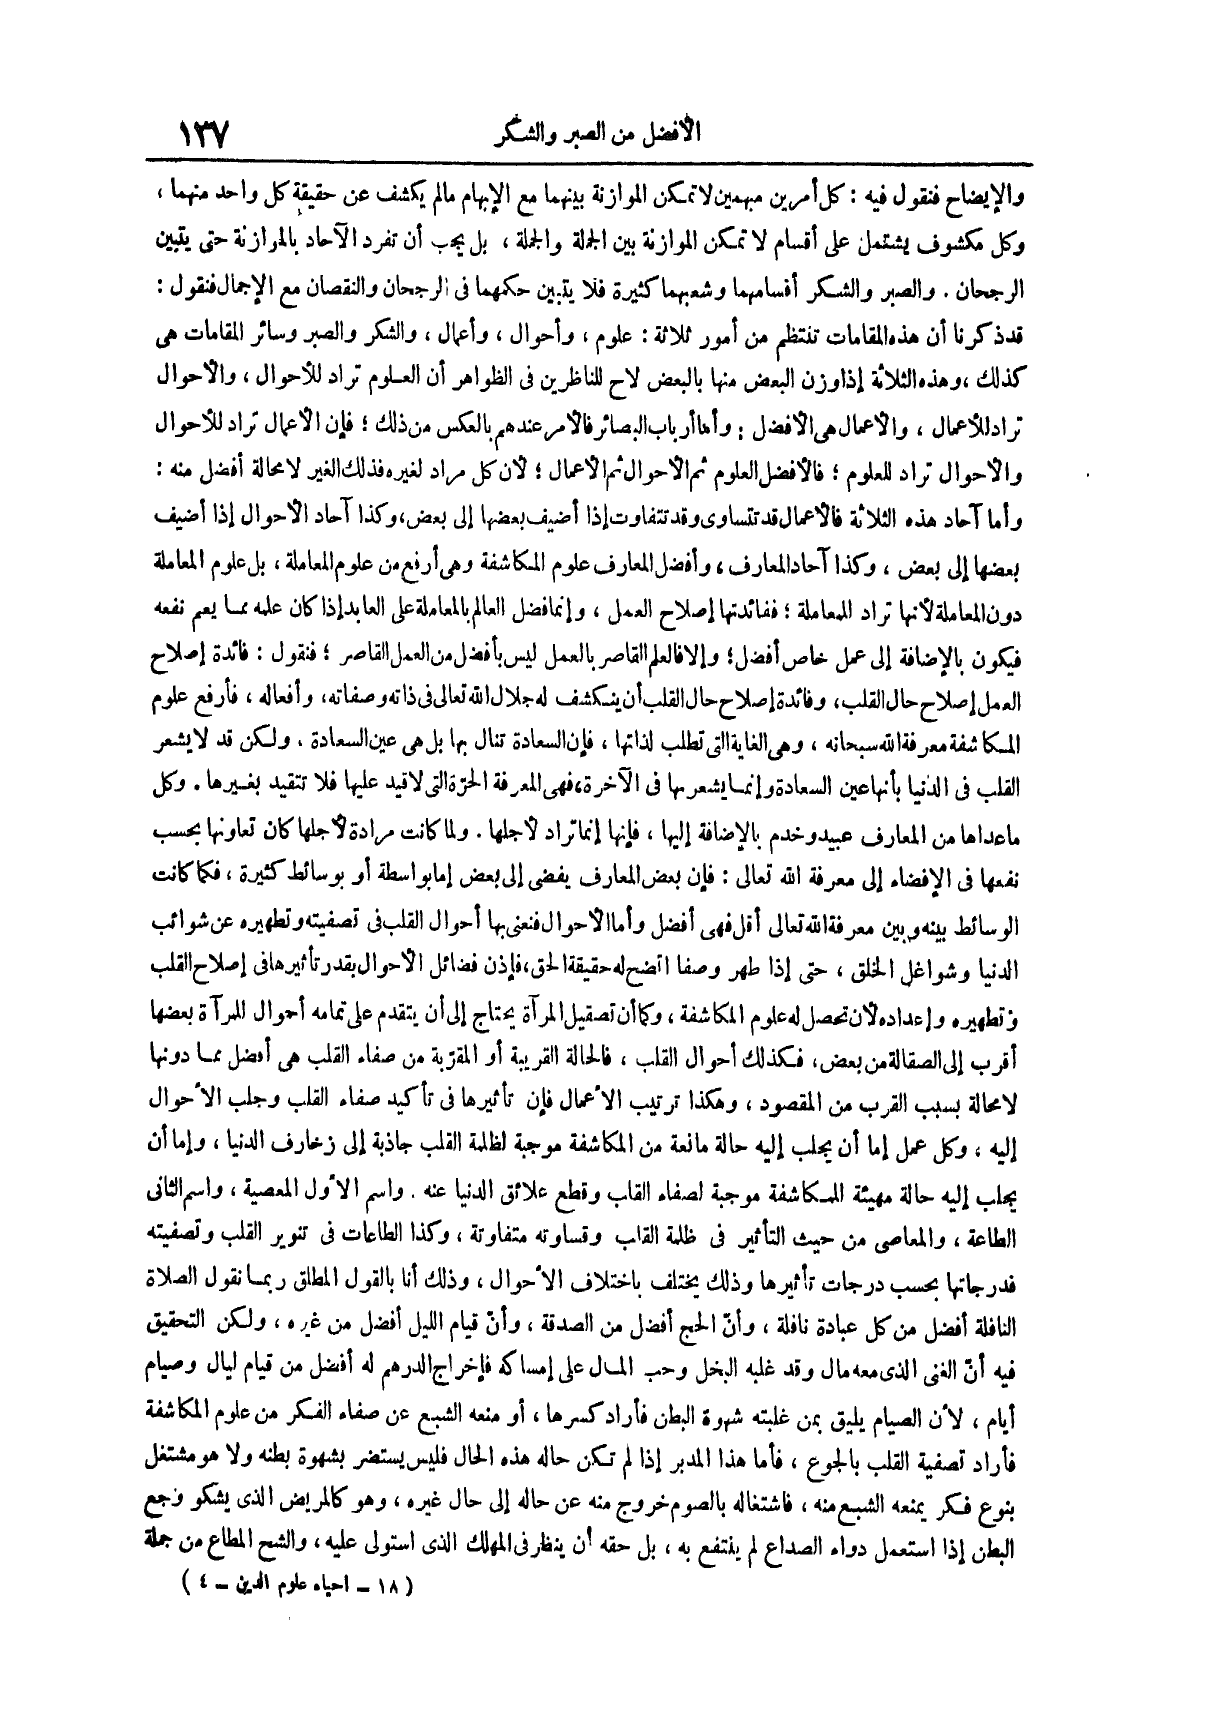 الأفضل من الصبر والشكر ١٣٧
والإيضاح فنقول فيه : كل أمرين مبهمين لا تمكن الموازنة بينهما مع الإبهام مالم يكشف عن حقيقة كل واحد منهما ،
وكل مكشوف يشتمل على أقسام لا تمكن الموازنة بين الجملة والجملة ، بل يجب أن تفرد الآحاد بالموازنة حتى يتبين
الرجحان . والصبر والشكر أقسامهما وشعبهما كثيرة فلا يتبين حكمهما فى الرجحان والنقصان مع الإجمال فنقول :
قد ذكرنا أن هذه المقامات تنتظم من أمور ثلاثة : علوم ، وأحوال ، وأعمال ، والشكر والصبر وسائر المقامات هى
كذلك ، وهذه الثلاثة إذا وزن البعض منها بالبعض لاح للناظرين فى الظواهر أن العلوم تراد للأحوال ، والأحوال
تراد للأعمال ، والأعمال هى الأفضل : وأما أرباب البصائر فالأمر عندهم بالعكس من ذلك ؛ فإن الأعمال تراد للأحوال
والأحوال تراد للعلوم ؛ فالأفضل العلوم ثم الأحوال ثم الأعمال ؛ لأن كل مراد لغيره فذلك الغير لا محالة أفضل منه :
وأما آحاد هذه الثلاثة فالأعمال قد تتساوى وقد تتفاوت إذا أضيف بعضها إلى بعض ، وكذا آحاد الأحوال إذا أضيف
بعضها إلى بعض ، وكذا آحاد المعارف ، وأفضل المعارف علوم المكاشفة وهى أرفع من علوم المعاملة ، بل علوم المعاملة
دون المعاملة لأنها تراد للمعاملة ؛ ففائدتها إصلاح العمل ، وإنما فضل العالم بالمعاملة على العابد إذا كان علمه مما يعم نفعه
فيكون بالإضافة إلى عمل خاص أفضل ؛ وإلا فالعلم القاصر بالعمل ليس بأفضل من العمل القاصر ؛ فنقول : فائدة إصلاح
العمل إصلاح حال القلب ، وفائدة إصلاح حال القلب أن ينكشف له جلال الله تعالى فى ذاته وصفاته ، وأفعاله ، فأرفع علوم
المكاشفة معرفة الله سبحانه ، وهى الغاية التى تطلب لذاتها ، فإن السعادة تنال بها بل هى عين السعادة . ولكن قد لا يشعر
القلب فى الدنيا بأنها عين السعادة وإنما يشعر بها فى الآخرة ، فهى المعرفة الحرّة التى لا قيد عليها فلا تتقيد بغيرها . وكل
ما عداها من المعارف عبيد وخدم بالإضافة إليها ، فإنها إنما تراد لأجلها . ولما كانت مرادة لأجلها كان تعاونها بحسب
نفعها فى الإفضاء إلى معرفة الله تعالى : فإن بعض المعارف يفضى إلى بعض إما بواسطة أو بوسائط كثيرة ، فكما كانت
الوسائط بينه وبين معرفة الله تعالى أقل فهى أفضل وأما الأحوال فنعنى بها أحوال القلب فى تصفيته وتطهيره عن شوائب
الدنيا وشواغل الخلق ، حتى إذا طهر وصفا اتضح له حقيقة الحق ، فإذن فضائل الأحوال بقدر تأثيرها فى إصلاح القلب
وتطهيره وإعداده لأن تحصل له علوم المكاشفة ، وكما أن تصقيل المرآة يحتاج إلى أن يتقدم على تمامه أحوال للمرآة بعضها
أقرب إلى الصقالة من بعض ، فكذلك أحوال القلب ، فالحالة القريبة أو المقرّبة من صفاء القلب هى أفضل مما دونها
لا محالة بسبب القرب من المقصود ، وهكذا ترتيب الأعمال فإن تأثيرها فى تأكيد صفاء القلب وجلب الأحوال
إليه ، وكل عمل إما أن يجلب إليه حالة مانعة من المكاشفة موجبة لظلمة القلب جاذبة إلى زخارف الدنيا ، وإما أن
يجلب إليه حالة مهيئة للمكاشفة موجبة لصفاء القلب وقطع علائق الدنيا عنه . واسم الأول المعصية ، واسم الثانى
الطاعة ، والمعاصى من حيث التأثير فى ظلمة القلب وقساوته متفاوتة ، وكذا الطاعات فى تنوير القلب وتصفيته
فدرجاتها بحسب درجات تأثيرها وذلك يختلف باختلاف الأحوال ، وذلك أنا بالقول المطلق ربما نقول الصلاة
النافلة أفضل من كل عبادة نافلة ، وأنّ الحج أفضل من الصدقة ، وأنّ قيام الليل أفضل من غيره ، ولكن التحقيق
فيه أنّ الغنى الذى معه مال وقد غلبه البخل وحب المال على إمساكه فإخراج الدرهم له أفضل من قيام ليال وصيام
أيام ، لأن الصيام يليق بمن غلبته شهوة البطن فأراد كسرها ، أو منعه الشبع عن صفاء الفكر من علوم المكاشفة
فأراد تصفية القلب بالجوع ، فأما هذا المدبر إذا لم تكن حاله هذه الحال فليس يستضر بشهوة بطنه ولا هو مشتغل
بنوع فكر يمنعه الشبع منه ، فاشتغاله بالصوم خروج منه عن حاله إلى حال غيره ، وهو كالمريض الذى يشكو وجع
البطن إذا استعمل دواء الصداع لم ينتفع به ، بل حقه أن ينظر فى المهلك الذى استولى عليه ، والشح المطاع من جملة
( ١٨ – احياء علوم الدين – ٤ )